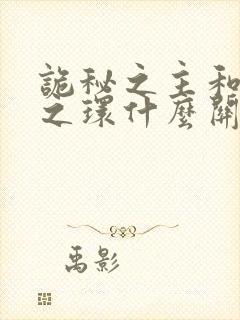 詭秘之主和
之環什麼關
禹影